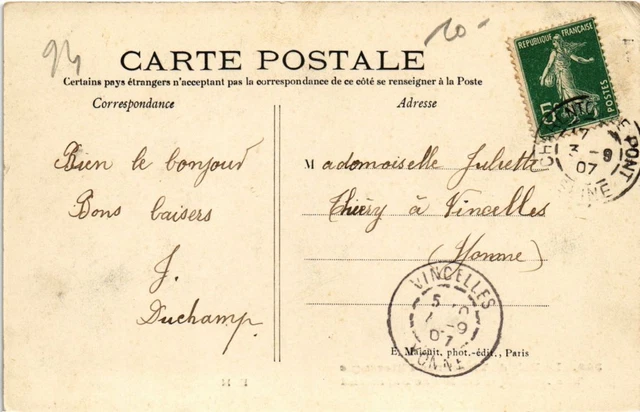 94
20-
CARTE POSTALE
Certains pays étrangers n'acceptant pas la correspondance de ce côté se renseigner à la Poste
Correspondance
Adresse
REPUBLIQUE FRANÇAISE
POSTES
CHARENTON LE PONT
17
3 - 9
07
SEINE
Bien le bonjour
Bons baisers
J.
Duchamp
Mademoiselle Juliette
Thiéry à Vincelles
(Yonne)
VINCELLES
07
YONNE
E. Malcuit, phot.-édit., Paris